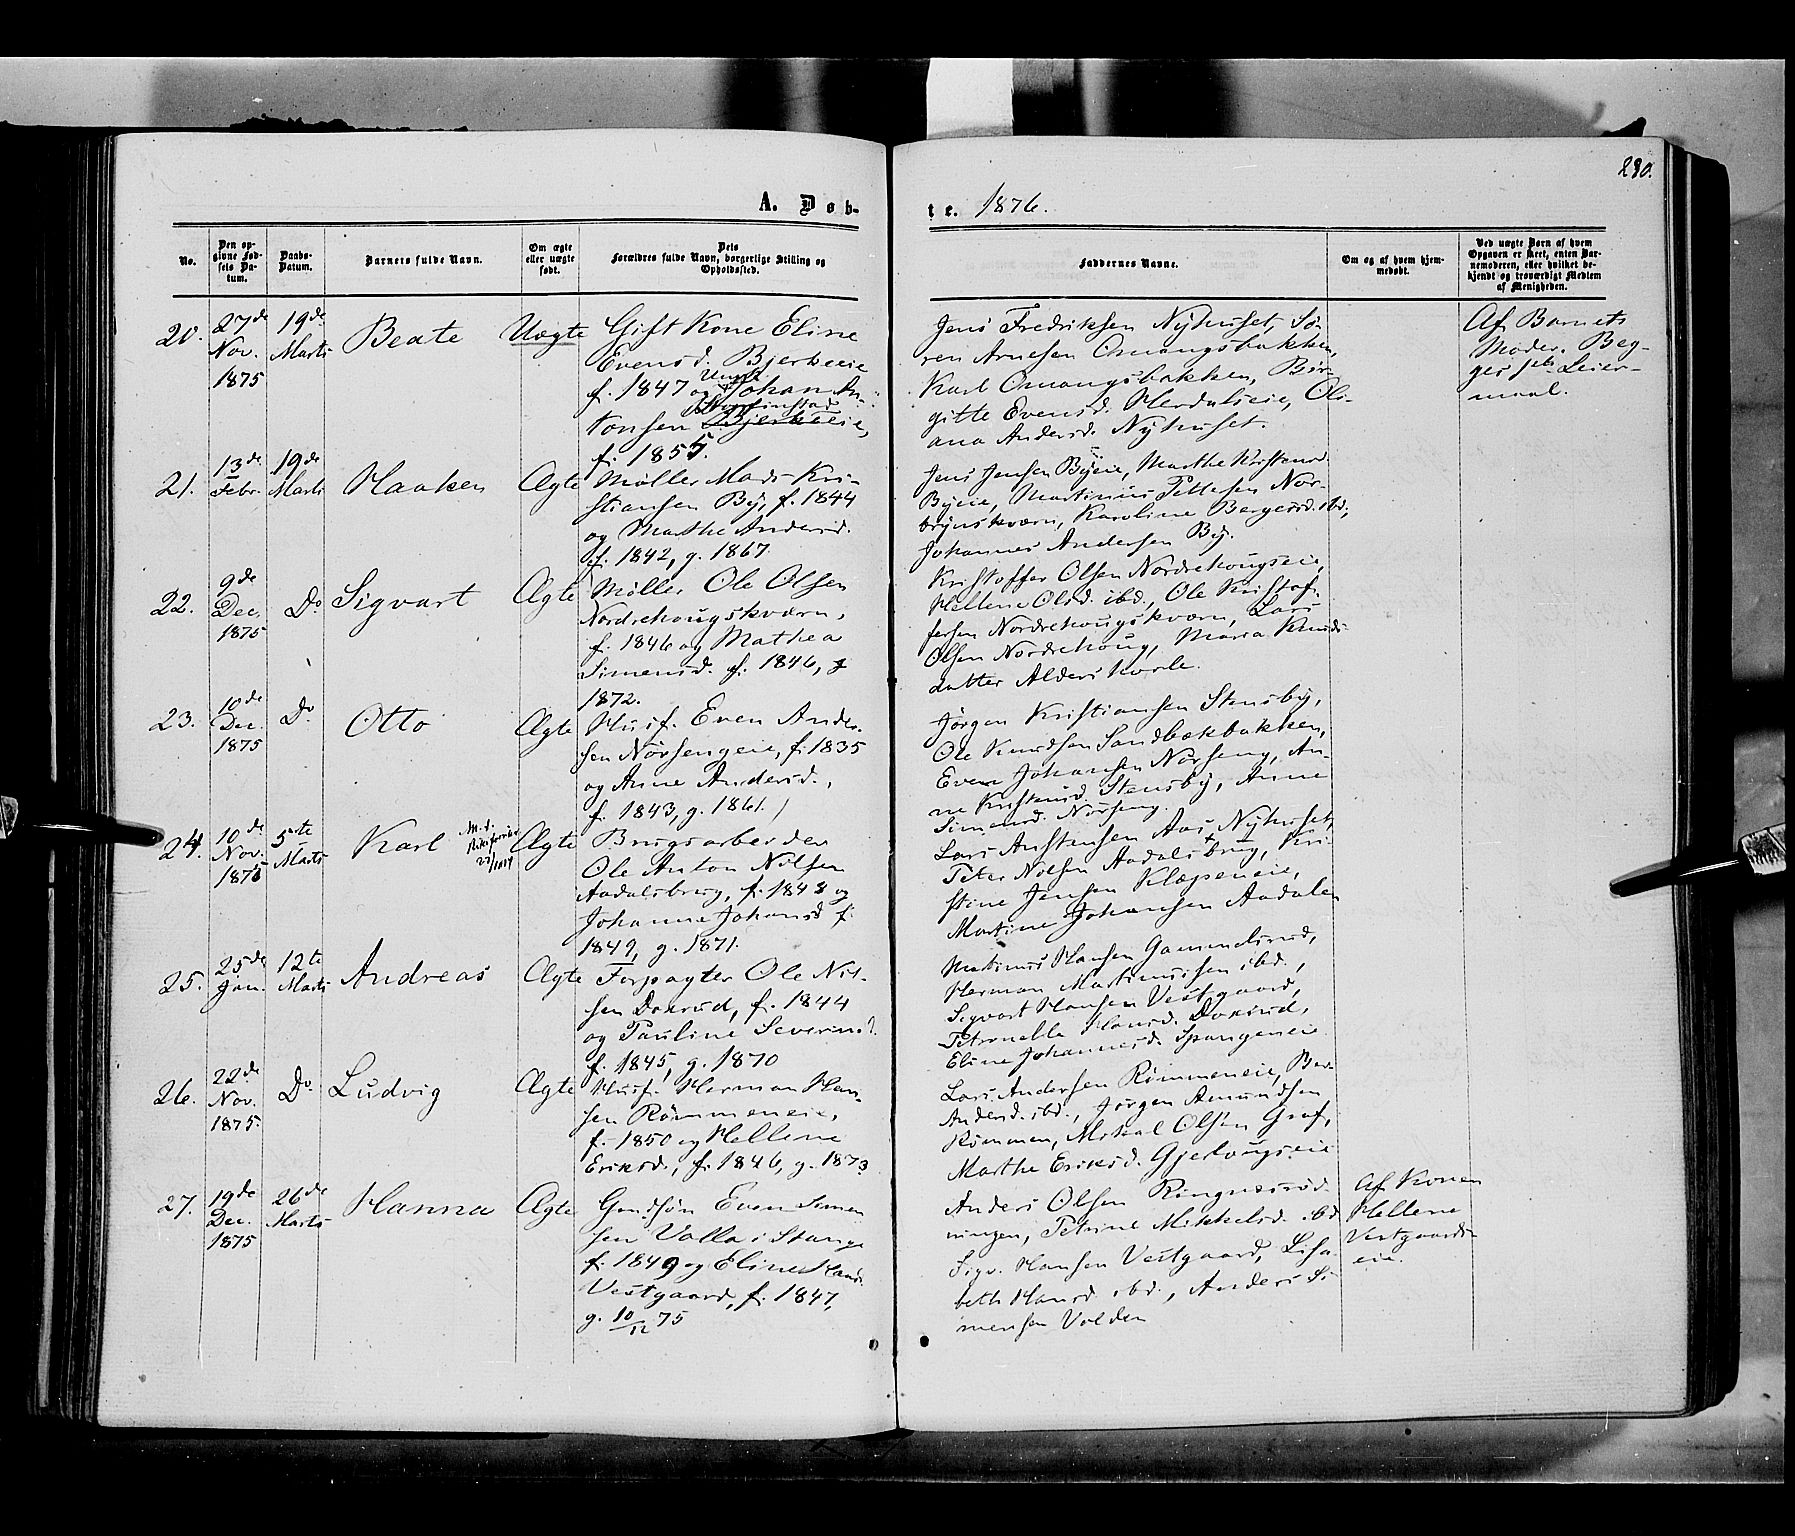 280.
A. Døb-
te. 1876.
No.
Den op-
givne Fød-
sels Da-
tum.
Daabs-
Datum.
Barnets fulde Navn.
Om ægte
eller uægte
født.
Dets
Forældres fulde Navn, borgerlige Stilling og
Opholdssted.
Faddernes Navne.
Om og af hvem hjem-
medøbt.
Ved uægte Børn af hvem
Opgaven er skeet, enten Bar-
nemoderen, eller hvilket be-
kjendt og troværdigt Medlem
af Menigheden.
20.
27de
Nov.
1875
19de
Marts
Beate
Uægte
Gift Kone Eline
Evensd. Bjerkeeie
f. 1847 og Ungk. Johan An-
tonsen Bjerkeeie,
f. 1855.
Jens Fredriksen Nyhuset, Sø-
ren Arnesen Omangsbakken,
Karl Omangsbakken, Bir-
gitte Evensd. Herdalseie, Oli-
ana Andersd. Nyhuset.
Af Barnets
Moder. Beg-
ges Leier-
maal.
21.
13de
Febr.
19de
Marts
Haaken
Ægte
Møller Mads Kri-
stiansen By, f. 1844
og Marthe Andersd.
f. 1842, g. 1867.
Jens Jensen Byeie, Marthe Kristensd.
Byeie, Martinus Pettersen Nor-
brynskværn, Karoline Bergersd. ibd.,
Johannes Andersen By.
22.
9de
Dec.
1875
Do
Sigvart
Ægte
Møller Ole Olsen
Nordrehougskværn,
f. 1846 og Mathea
Simensd. f. 1846, g
1872.
Kristoffer Olsen Nordrehougseie,
Hellene Olsd. ibd., Ole Kristof-
fersen Nordrehougskværn, Lars
Olsen Nordrehoug, Maria Knuds-
datter Alderskorle.
23.
10de
Dec.
1875
Do
Otto
Ægte
Husf. Even Ander-
sen Nørsengeie, f. 1835
og Anne Andersd.,
f. 1843, g. 1861.
Jørgen Kristiansen Stensby,
Ole Knudsen Sandbækbakken,
Even Johansen Nørseng, An-
ne Kristensd. Stensby, Anne
Simensd. Nørseng.
24.
10de
Nov.
1875
5te
Marts
Karl
Ægte
Brugsarbeider
Ole Anton Nilsen
Aadalsbrug, f. 1848 og
Johanne Johansd f.
1849, g. 1871.
Lars Austensen Aas Nyhuset,
Peter Nilsen Aadalsbrug, Kri-
stine Jensen Klæpeneie,
Martine Johansen Aadalen
25.
25de
Jan.
12te
Marts
Andreas
Ægte
Forpagter Ole Nil-
sen Doxrud, f. 1844
og Pauline Severinsd.
f. 1845, g. 1870
Matinus Hansen Gammelsrud,
Herman Martinussen ibd.,
Sigvart Hansen Vestgaard,
Petronelle Hansd. Doxrud,
Eline Johannesd. Spangeneie
26.
22de
Nov.
1875
Do
Ludvig
Ægte
Husf. Herman Han-
sen Rømmeneie,
f. 1850 og Hellene
Eriksd., f. 1846, g. 1873
Lars Andersen Rømmeneie, Ber.
Andersd. ibd., Jørgen Amundsen
Rømmen, Mikael Olsen Graf,
Marthe Eriksd. Gjerlougseie
27.
19de
Dec.
1875
26de
Marts
Hanna
Ægte
Gaardsøn Even Simen
sen Valla i Stange
f. 1849 og Eline Hansd.
Vestgaard, f. 1847,
g. 10/12 75
Anders Olsen Ringnesrød-
ningen, Petrine Mikkelsd. ibd
Sigv. Hansen Vestgaard, Lisa-
beth Hansd ibd., Anders Si-
mensen Volden
Af Konen
Hellene
Vestgaards-
eie.